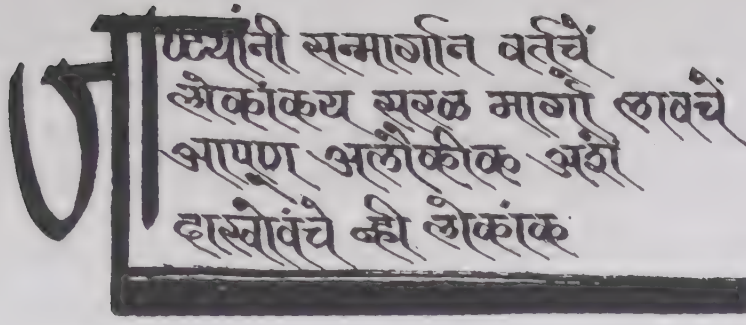 जाण्यांनी सन्मार्गान वर्तुचें
लोकांकय सरळ मार्गी लावचें
आपुण अलौकीक अशें
दाखोवंचे न्ही लोकांक